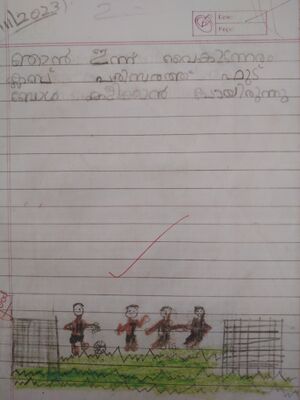 11/2023)
Date:
Page:
ഞാൻ ഇന്ന് വൈകുന്നേരം
ക്ലബ് പരിസരത്ത് ഫുട്
ബോൾ കളിക്കാൻ പോയിരുന്നു